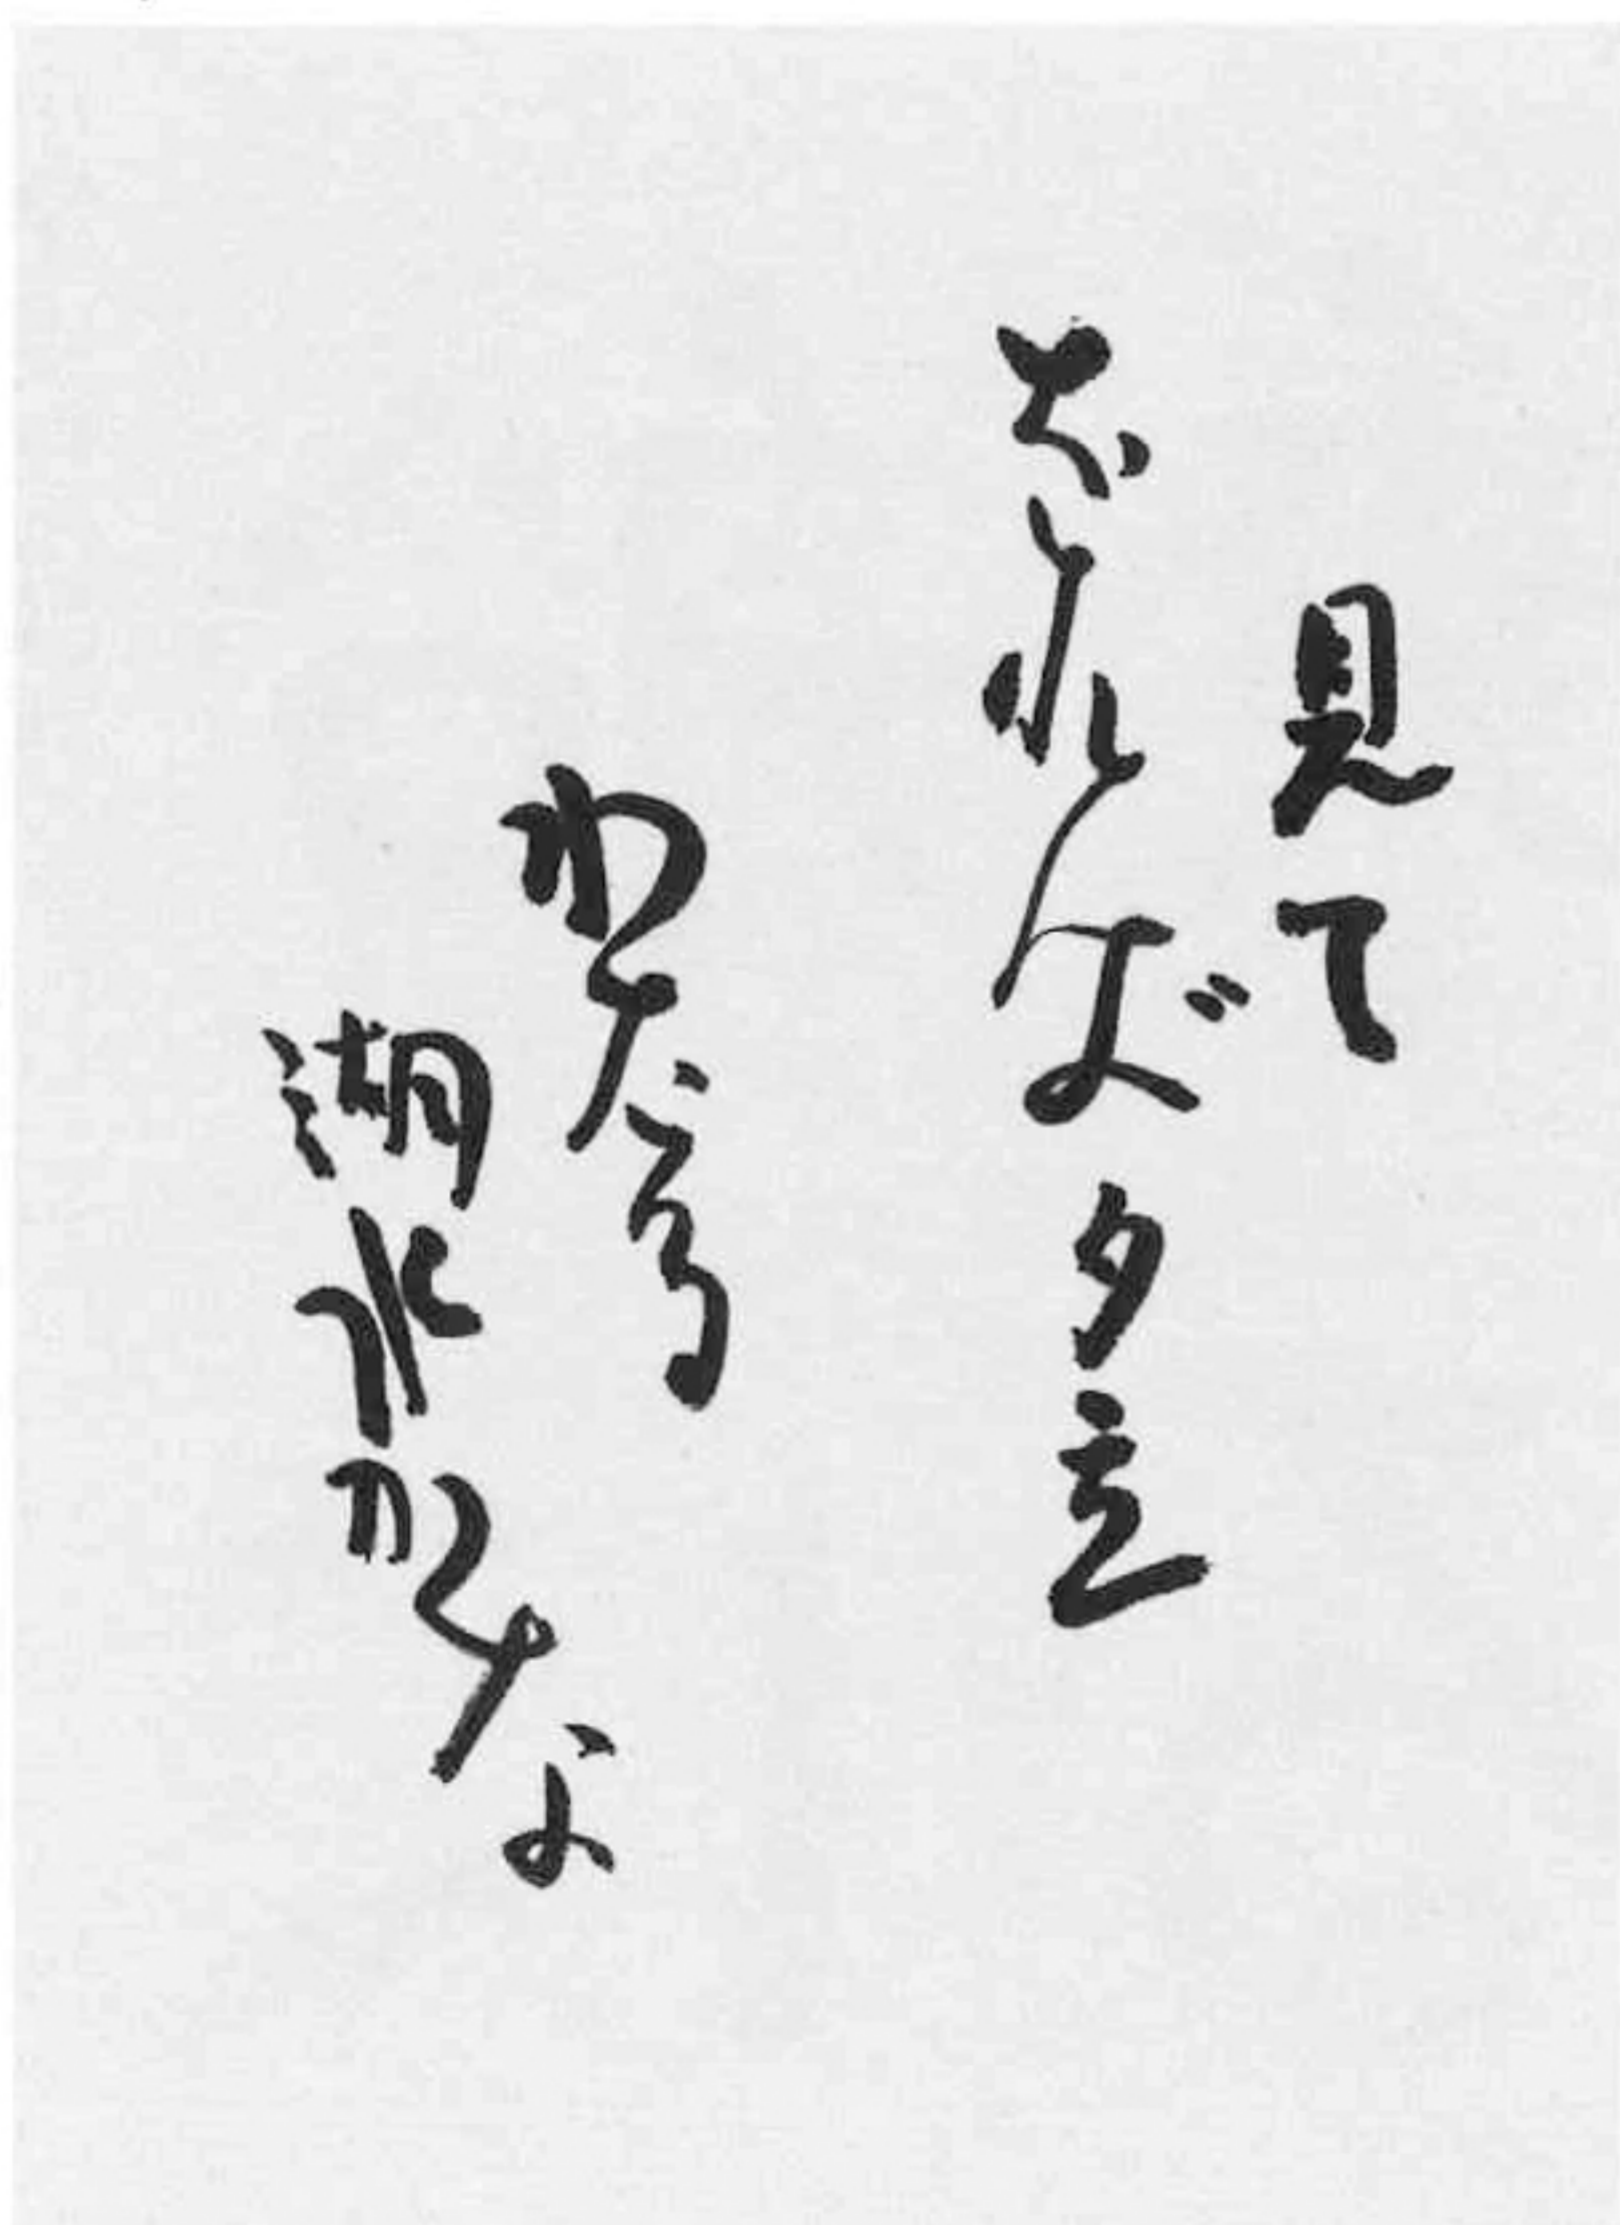 見て
をれば夕立
わたる
湖水かな